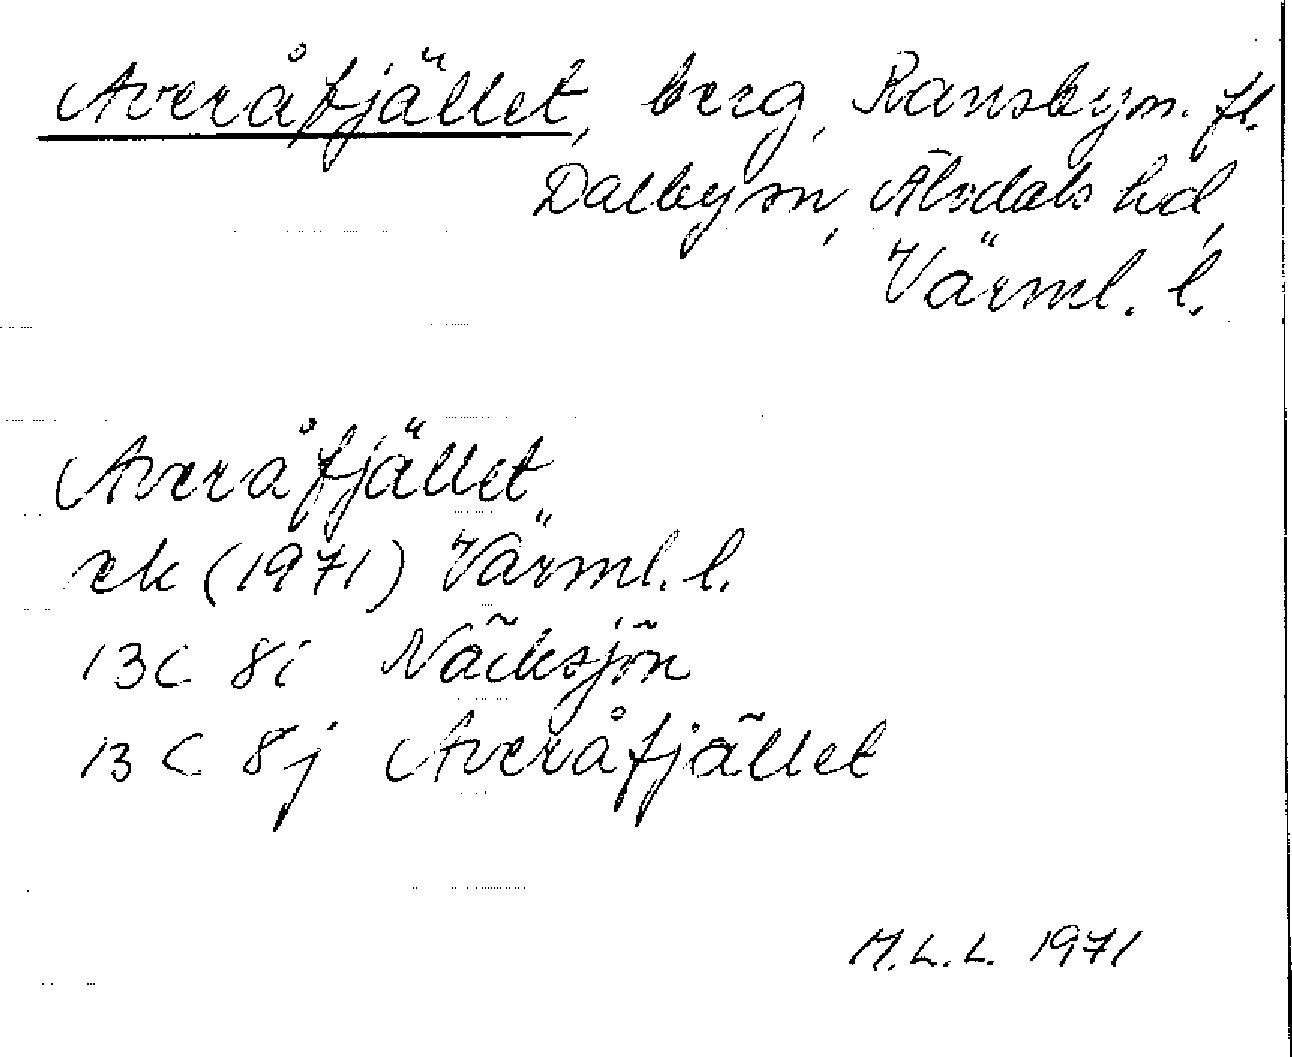 Averåfjället, berg, Ransbysn. fl.
Dalby sn, Älvdals hd,
Värml. l.
Averåfjället
ek (1971) Värml. l.
13C 8i Näcksjön
13C 8j Averåfjället
M.L.L. 1971